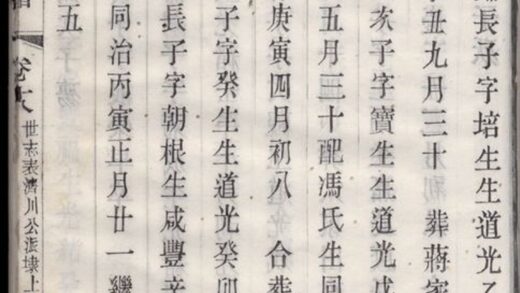 長子字培生生道光乙
丑九月三十 葬蔣家
亥子字寶生生道光戊
五月三十配馮氏生同
庚寅四月初八 合葬
子字癸生生道光癸卯
長子字朝根生咸豐辛
同治丙寅正月廿一
五
世表濟川公派